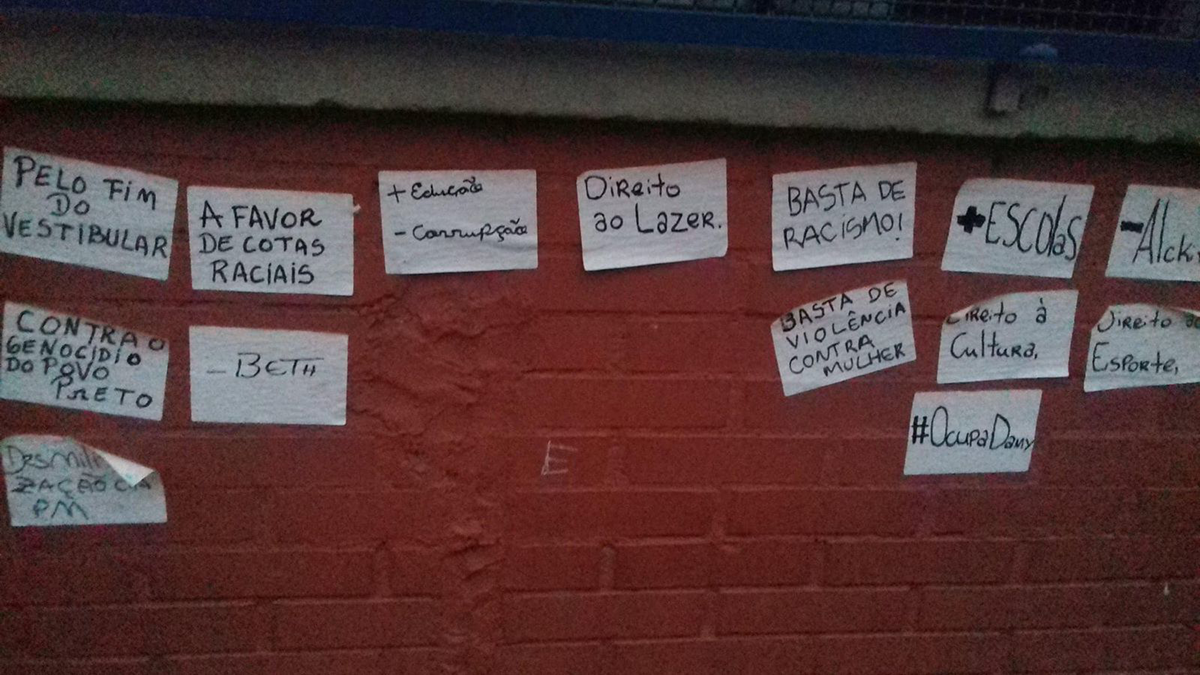 PELO FIM
DO
VESTIBULAR
A FAVOR
DE COTAS
RACIAIS
+ Educação
- Corrupção
Direito
ao Lazer.
BASTA DE
RACISMO!
+ESCOLAS
-Alck
CONTRA O
GENOCÍDIO
DO POVO
PRETO
- BETH
BASTA DE
VIOLÊNCIA
CONTRA
MULHER
Direito à
Cultura,
Direito ao
Esporte,
#OcupaDany
ZAÇÃO
PM